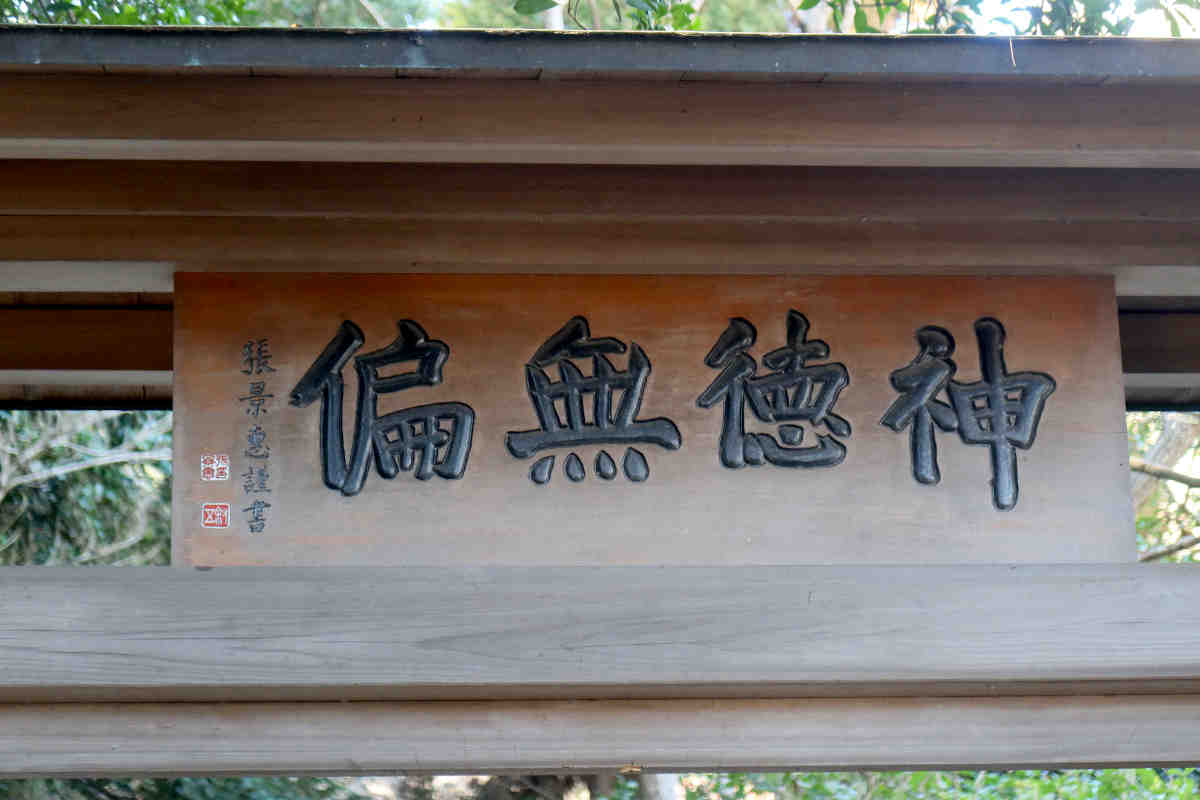 神德無偏
張景惠謹書